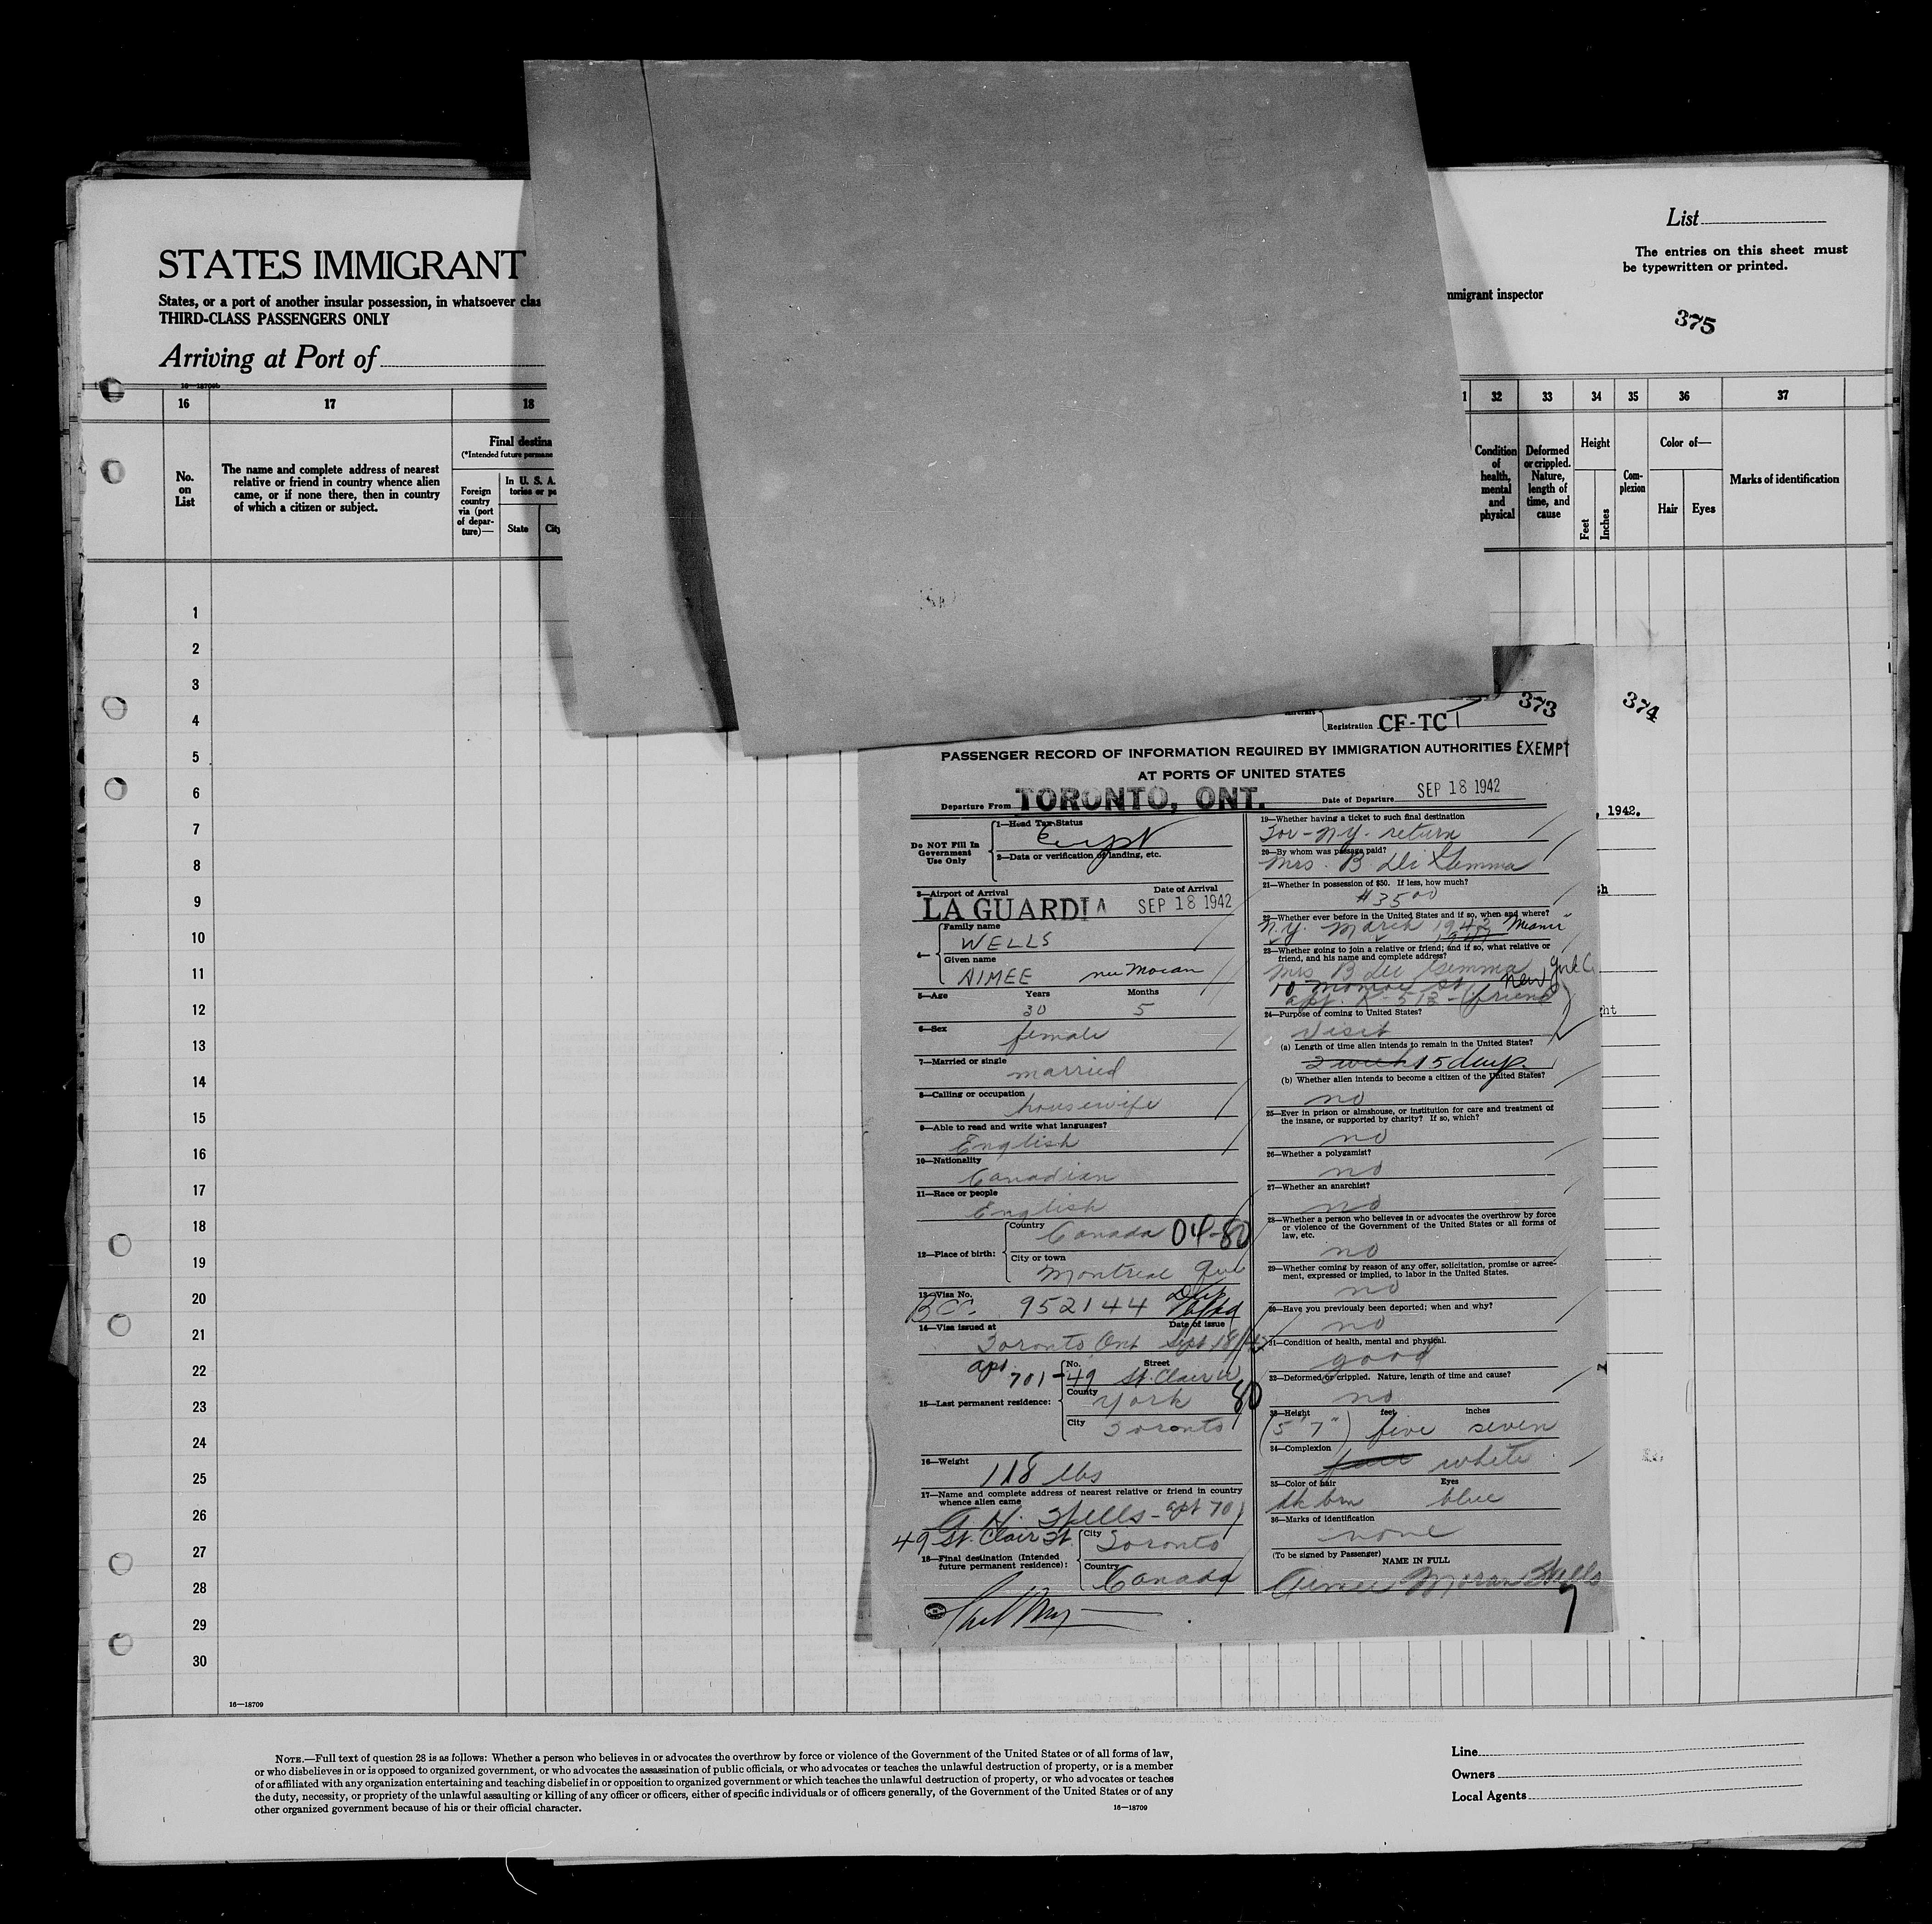 List
The entries on this sheet must
be typewritten or printed.
STATES IMMIGRANT
States, or a port of another insular possession, in whatsoever clas
mmigrant inspector
THIRD-CLASS PASSENGERS ONLY
375
Arriving at Port of
16—18709b
16 17 18 1 32 33 34 35 36 37
No. on List
The name and complete address of nearest
relative or friend in country whence alien
came, or if none there, then in country
of which a citizen or subject.
Final destina
(*Intended future permane
Foreign
country
via (port
of depar-
ture)—
In U. S. A.
tories or po
State City
Condition
of
health,
mental
and
physical
Deformed
or crippled.
Nature,
length of
time, and
cause
Height
Feet Inches
Com-
plexion
Color of—
Hair Eyes
Marks of identification
1
2
3
4
5
6
7
8
9
10
11
12
13
14
15
16
17
18
19
20
21
22
23
24
25
26
27
28
29
30
16—18709
373
374
Registration CF-TC
PASSENGER RECORD OF INFORMATION REQUIRED BY IMMIGRATION AUTHORITIES EXEMPT
AT PORTS OF UNITED STATES
Departure From TORONTO, ONT. Date of Departure SEP 18 1942
, 1942.
Do NOT Fill In
Government
Use Only
1—Head Tax Status
2—Data or verification of landing, etc.
3—Airport of Arrival Date of Arrival
LA GUARDIA SEP 18 1942
4— Family name
WELLS
Given name
AIMEE nee Moran
5—Age Years Months
30 5
6—Sex
female
7—Married or single
married
8—Calling or occupation
housewife
9—Able to read and write what languages?
English
10—Nationality
Canadian
11—Race or people
English
12—Place of birth: Country
Canada 04-80
City or town
Montreal Que
13—Visa No.
BCC. 952144
14—Visa issued at Date of issue
Toronto Ont Sept 18/42
apt 701-49 St. Clair W
No. Street
15—Last permanent residence: County
York 80
City
Toronto
16—Weight
118 lbs
17—Name and complete address of nearest relative or friend in country
whence alien came
G. H. Wells - apt 701
49 St. Clair St. City Toronto
18—Final destination (Intended
future permanent residence): Country
Canada
19—Whether having a ticket to such final destination
Tor-N.Y. return
20—By whom was passage paid?
Mrs. B
21—Whether in possession of $50. If less, how much?
$35.00
22—Whether ever before in the United States and if so, when and where?
N.Y. March 1942
23—Whether going to join a relative or friend; and if so, what relative or
friend, and his name and complete address?
Mrs B
10 Monroe St. New York C
apt. (friend)
24—Purpose of coming to United States?
visit
(a) Length of time alien intends to remain in the United States?
2 weeks 15 days.
(b) Whether alien intends to become a citizen of the United States?
no
25—Ever in prison or almshouse, or institution for care and treatment of
the insane, or supported by charity? If so, which?
no
26—Whether a polygamist?
no
27—Whether an anarchist?
no
28—Whether a person who believes in or advocates the overthrow by force
or violence of the Government of the United States or all forms of
law, etc.
no
29—Whether coming by reason of any offer, solicitation, promise or agree-
ment, expressed or implied, to labor in the United States.
no
30—Have you previously been deported; when and why?
no
31—Condition of health, mental and physical.
good
32—Deformed or crippled. Nature, length of time and cause?
no
33—Height feet inches
(5' 7") five seven
34—Complexion
fair white
35—Color of hair Eyes
dk brn blue
36—Marks of identification
none
(To be signed by Passenger) NAME IN FULL
Aimee Moran Wells
NOTE.—Full text of question 28 is as follows: Whether a person who believes in or advocates the overthrow by force or violence of the Government of the United States or of all forms of law,
or who disbelieves in or is opposed to organized government, or who advocates the assassination of public officials, or who advocates or teaches the unlawful destruction of property, or is a member
of or affiliated with any organization entertaining and teaching disbelief in or opposition to organized government or which teaches the unlawful destruction of property, or who advocates or teaches
the duty, necessity, or propriety of the unlawful assaulting or killing of any officer or officers, either of specific individuals or of officers generally, of the Government of the United States or of any
other organized government because of his or their official character.
16—18709
Line
Owners
Local Agents